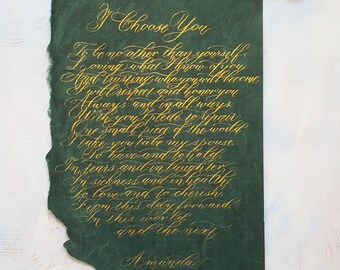 I Choose You
To be no other than yourself
Loving what I know of you
And trusting who you will become
I will respect and honor you
Always and in all ways.
With you I pledge to repair
One small piece of the world
I take you to be my spouse
To have and to hold
In tears and in laughter
In sickness and in health
To love and to cherish
From this day forward
In this world
and the next
Amanda